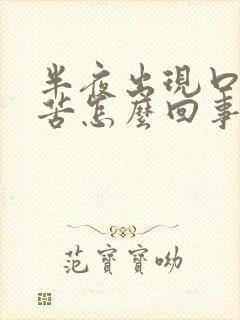 半夜出現口
苦怎麼回事
范寶寶呦